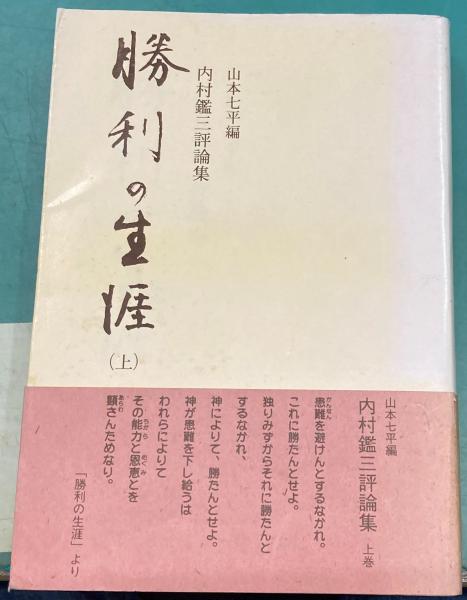 山本七平編
内村鑑三評論集
勝利の生涯
(上)
山本七平編
内村鑑三評論集 上巻
患難を避けんとするなかれ。
これに勝たんとせよ。
独りみずからそれに勝たんと
するなかれ、
神によりて、勝たんとせよ。
神が患難を下し給うは
われらによりて
その能力と恩恵とを
顕さんためなり。
「勝利の生涯」より